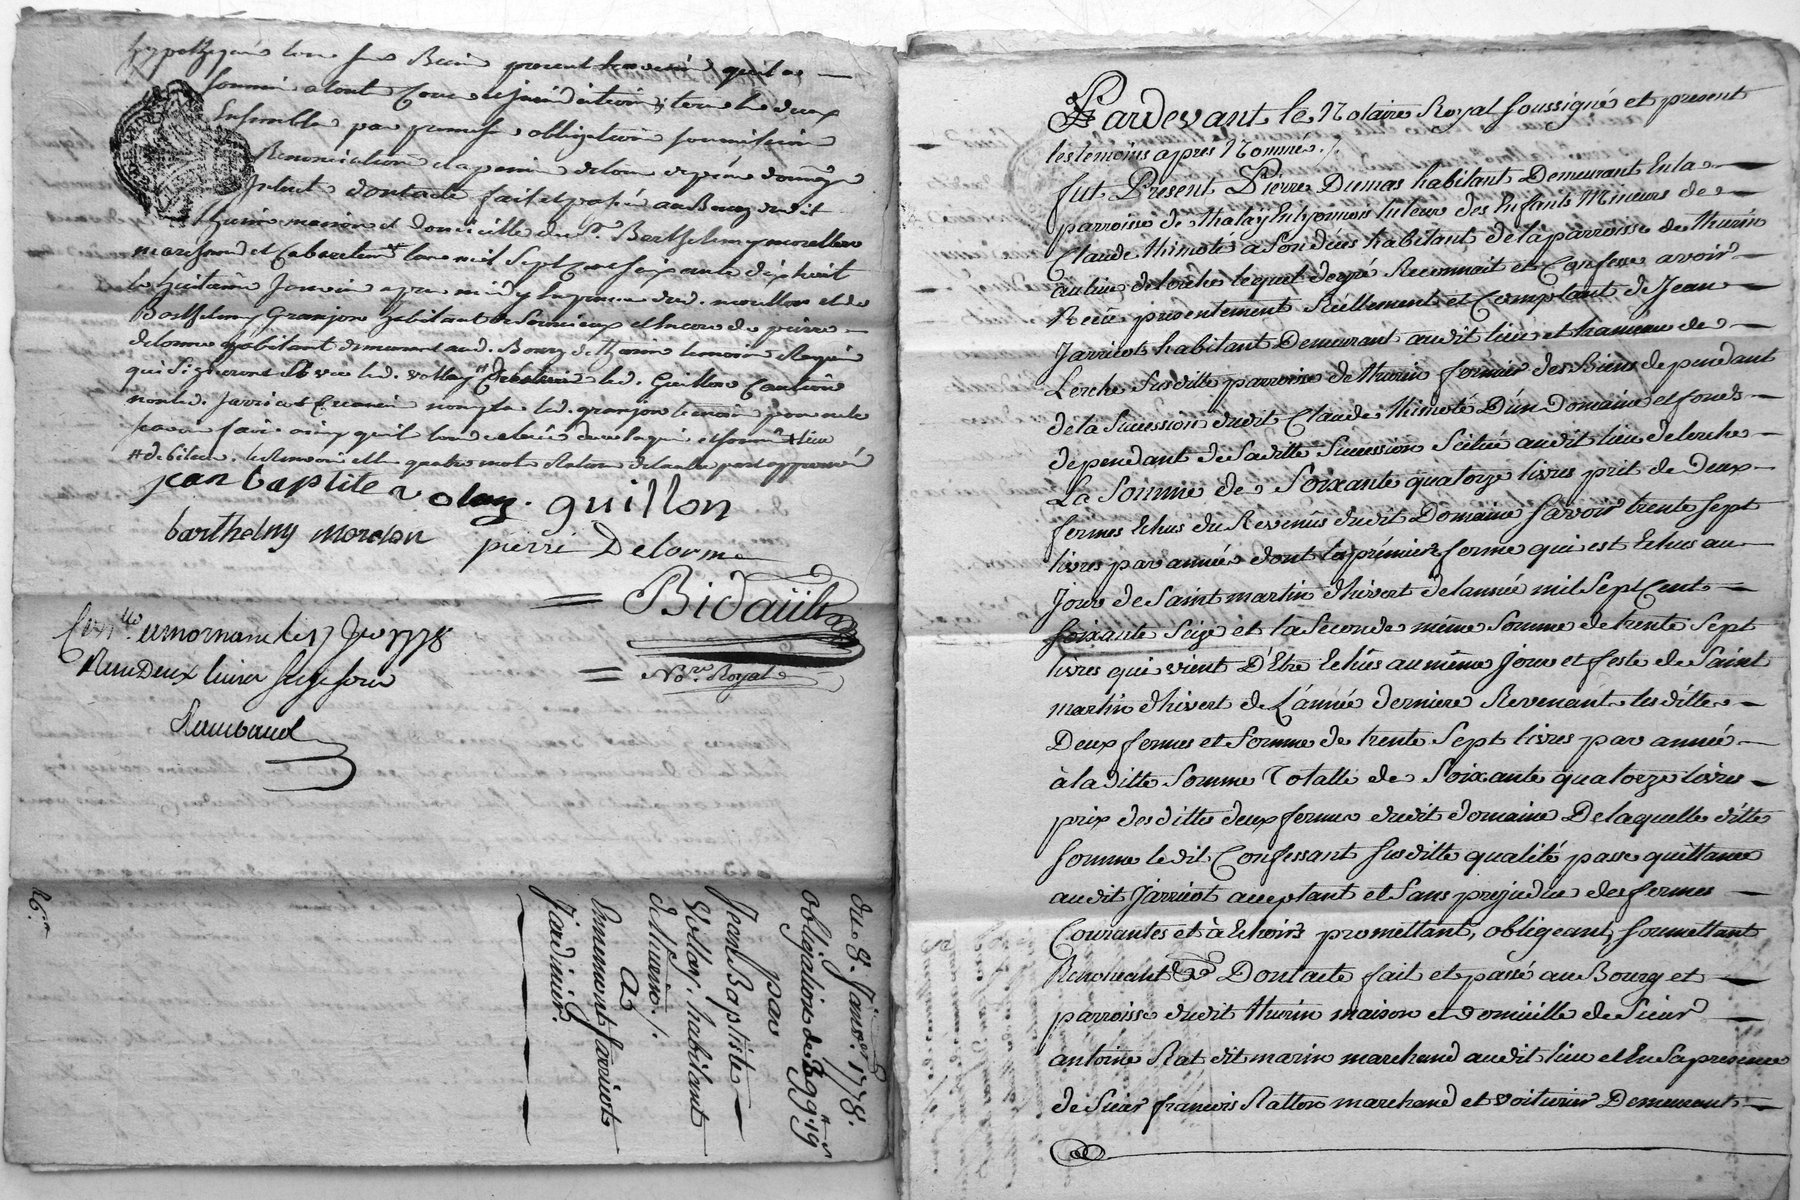 hypothequé tous ses Biens present & avenir quil a
soumis a toute Cour et jurisdiction
Ensemble par promesse obligation soumission
Renonciation
dont acte fait et passé au Bourg dudit
thurin maison et domicille du Sr. Berthelemy morellon
marchand et Cabaretier Lan mil Sept Cent soixante dix huit
le huitieme Janvier apres midy En presence dud. morellon et de
Barthelemy Granjon habitant de et Encore de pierre
delorme habitant demeurant aud. Bourg de thurin temoins Requis
qui Signeront avec led. vollay led. Guillon Caution
non led. Jarricot Creancier non plus led. granjon temoin pour ne le
sçavoir faire ainsy quil
jean baptite volay. guillon
barthelmy morelon pierre Delorme
= Bidault
= No.re Royal
a mornant le 17 Jer 1778
Reçu Deux livres
Raimbaud
du 8. Janv.er 1778.
obligation de 399 lt. 19
par
Jean Baptiste
Vollay. habitant
de thurins./.
a
Ennemont Jarricot
Jardinier.
Pardevant le Notaire Royal soussigné et present
les temoins apres Nommés ./.
fut Present Pierre Dumas habitant Demeurant En la
parroisse de thalay En lyonnois tuteur des Enfants Mineurs de
Claude thimoté a Son déces habitant de la parroisse de thurin
au lieu de lorche lequel de gré Reconnait et Confesse avoir
Receu presentement Reéllement et Comptant de Jean
Jarricot habitant Demeurant audit lieu et hameau de
Lorche Susditte parroisse de thurin fermier des Biens dependant
de la Succession dudit Claude thimoté D'un Domaine et fonds
dependant de Saditte Succession Scitué audit lieu de lorche
La Somme de Soixante quatorze livres prit de Deux
fermes Echus du Revenûs dudit Domaine savoir trente sept
livres par année dont la prémiere ferme qui est Echus au
Jour de Saint martin d'hivert de lannée mil Sept Cent
soixante Seize et la Seconde même Somme de trente Sept
livres qui vient D'Etre Echûs au même Jour et feste de Saint
martin d'hivert de L'année derniere Revenant lesditte
Deux fermes et Somme de trente Sept livres par année
à la ditte Somme Totalle de Soixante quatorze livres
prix desditte deux fermes dudit domaine De laquelle ditte
somme le dit Confessant susditte qualité passe quittance
audit Jarricot acceptant et Sans prejudice des fermes
Courantes et à Echoirs promettant, obligeant, soumettant
Renoncant &c Dont acte fait et passé au Bourg et
parroisse dudit thurin maison et domicille de Sieur
antoine Rat dit marin marchand audit lieu et En Sa presence
de Sieur francois Ratton marchand et voiturier Demeurant